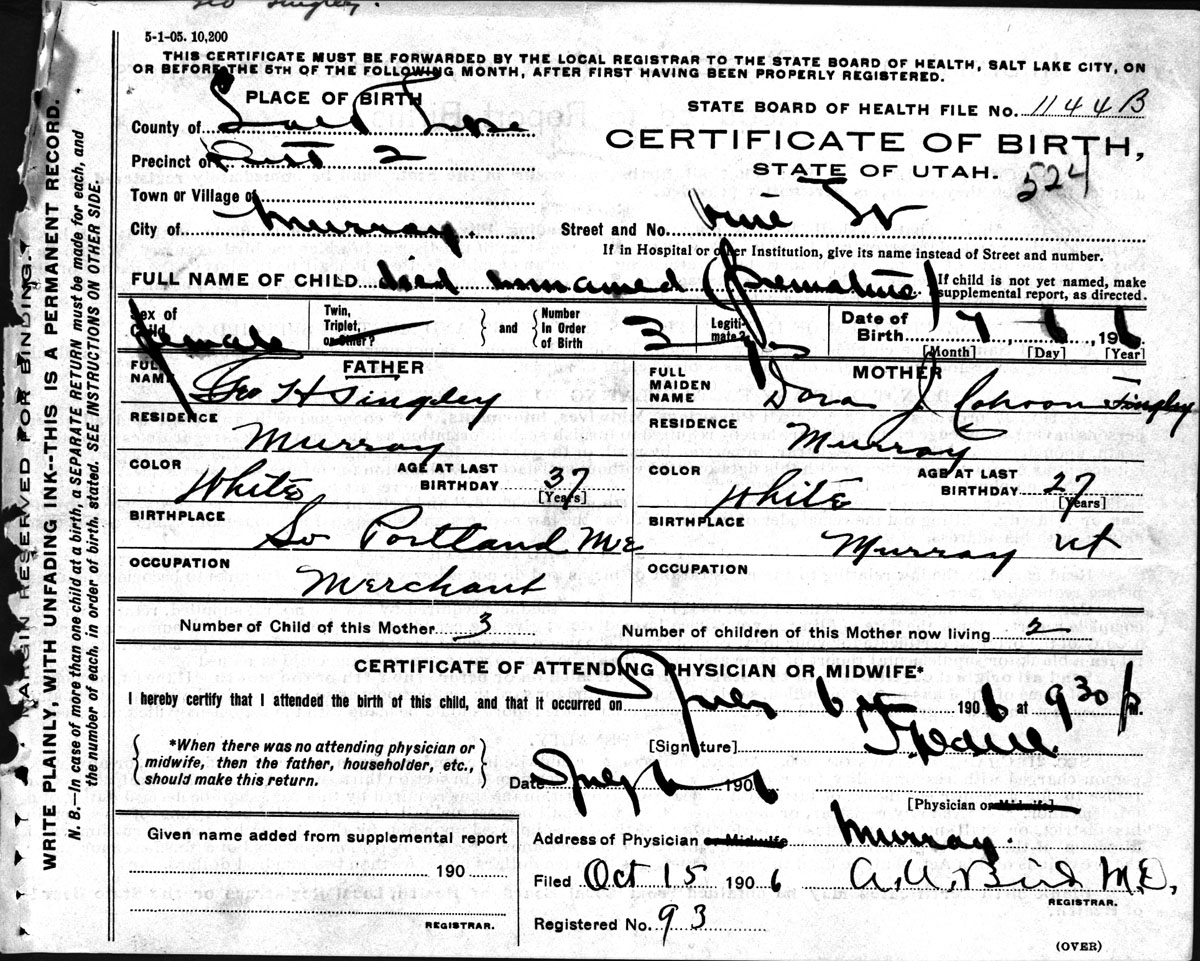 Geo Singley.
5-1-05. 10,200
THIS CERTIFICATE MUST BE FORWARDED BY THE LOCAL REGISTRAR TO THE STATE BOARD OF HEALTH, SALT LAKE CITY, ON
OR BEFORE THE 5TH OF THE FOLLOWING MONTH, AFTER FIRST HAVING BEEN PROPERLY REGISTERED.
PLACE OF BIRTH
STATE BOARD OF HEALTH FILE No. 1144B
County of Salt Lake
CERTIFICATE OF BIRTH,
Precinct of 2
STATE OF UTAH. 524
Town or Village of
City of Murray Street and No. Vine St
If in Hospital or other Institution, give its name instead of Street and number.
FULL NAME OF CHILD died unnamed (premature) If child is not yet named, make supplemental report, as directed.
Sex of Child female Twin, Triplet, or Other? and Number In Order of Birth 3 Legiti-mate? Yes Date of Birth 7, 6, 1906
[Month] [Day] [Year]
FATHER MOTHER
FULL NAME Geo H Singley FULL MAIDEN NAME Dora J Cahoon Singley
RESIDENCE Murray RESIDENCE Murray
COLOR White AGE AT LAST BIRTHDAY 37 [Years] COLOR White AGE AT LAST BIRTHDAY 27 [Years]
BIRTHPLACE So Portland Me BIRTHPLACE Murray Ut
OCCUPATION Merchant OCCUPATION
Number of Child of this Mother 3 Number of children of this Mother now living 2
CERTIFICATE OF ATTENDING PHYSICIAN OR MIDWIFE*
I hereby certify that I attended the birth of this child, and that it occurred on July 6 1906 at 930 P M.
*When there was no attending physician or
midwife, then the father, householder, etc.,
should make this return.
[Signature]
Date July 1906
[Physician or Midwife]
Given name added from supplemental report
190
REGISTRAR.
Address of Physician or Midwife Murray
Filed Oct 15 1906 A. A. Bird M.D.
REGISTRAR.
Registered No. 93
(OVER)
MARGIN RESERVED FOR BINDING.
WRITE PLAINLY, WITH UNFADING INK--THIS IS A PERMANENT RECORD.
N. B.—In case of more than one child at a birth, a SEPARATE RETURN must be made for each, and
the number of each, in order of birth, stated. SEE INSTRUCTIONS ON OTHER SIDE.